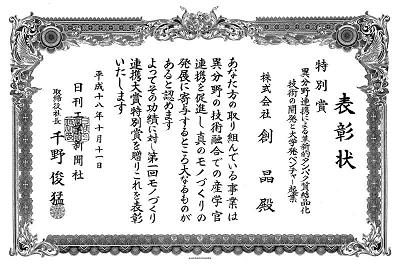 表彰状
特別賞
異分野連携による革新的タンパク質結晶化
技術の開発と大学発ベンチャー起業
株式会社 創晶 殿
あなた方の取り組んでいる事業は
異分野の技術融合での産学官
連携を促進し真のモノづくりの
発展に寄与するところ大なるものが
あると認めます
よってその功績に対し第一回モノづくり
連携大賞特別賞を贈りこれを表彰
いたします
平成十八年十月十一日
日刊工業新聞社
取締役社長 千野俊猛